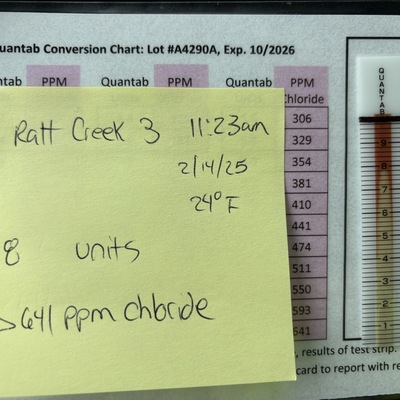 uantab Conversion Chart: Lot #A4290A, Exp. 10/2026
ntab PPM Quantab PPM Quantab PPM
Chloride
306
329
354
381
410
441
474
511
550
593
641
Ratt Creek 3 11:23am
2/14/25
24°F
8 units
>641 ppm chloride
QUANTAB
9
8
7
6
5
4
3
2
1
, results of test strip.
card to report with re